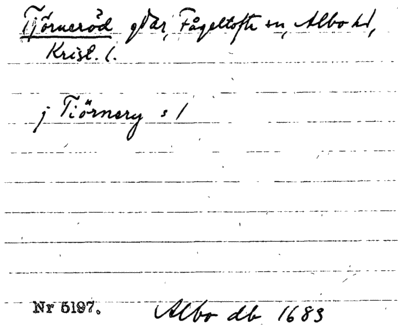 Tjörneröd gdar, Fågeltofta sn, Albo hd,
Krist. l.
j Tiörnery s 1
Nr 5197. Albo db 1683